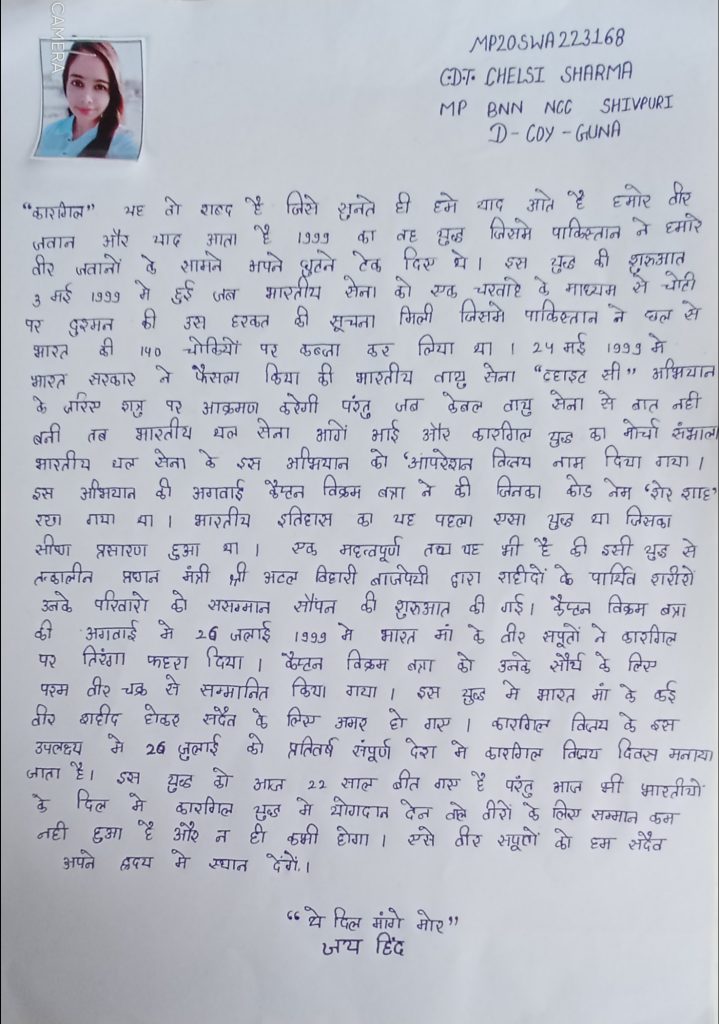 CAMERA
MP20SWA223168
C.D.T. CHELSI SHARMA
MP BNN NCC SHIVPURI
D - COY - GUNA
"कारगिल" यह वो शब्द है जिसे सुनते ही हमे याद आते है हमारे वीर
जवान और याद आता है 1999 का वह युद्ध जिसमे पाकिस्तान ने हमारे
वीर जवानों के सामने अपने घुटने टेक दिए थे। इस युद्ध की शुरुआत
3 मई 1999 मे हुई जब भारतीय सेना को एक चरवाहे के माध्यम से चोटी
पर दुश्मन की उस हरकत की सूचना मिली जिसमे पाकिस्तान ने छल से
भारत की 140 चोकियों पर कब्जा कर लिया था। 24 मई 1999 मे
भारत सरकार ने फैसला किया की भारतीय वायु सेना "व्हाइट सी" अभियान
के जरिए शत्रु पर आक्रमण करेगी परंतु जब केबल वायु सेना से बात नही
बनी तब भारतीय थल सेना आगें आई और कारगिल युद्ध का मोर्चा संभाला
भारतीय थल सेना के इस अभियान को 'आपरेशन विजय नाम दिया गया।
इस अभियान की अगवाई कैप्टन विक्रम बत्रा ने की जिनका कोड नेम 'शेर शाह'
रखा गया था। भारतीय इतिहास का यह पहला एसा युद्ध था जिसका
सीधा प्रसारण हुआ था। एक महत्वपूर्ण तथ्य यह भी है की इसी युद्ध से
तत्कालीन प्रधान मंत्री श्री अटल विहारी बाजपेयी द्वारा शहीदों के पार्थिव शरीरों
उनके परिवारो को ससम्मान सौंपन की शुरुआत की गई। कैप्टन विक्रम बत्रा
की अगवाई मे 26 जुलाई 1999 मे भारत मां के वीर सपूतों ने कारगिल
पर तिरंगा फहरा दिया। कैप्टन विक्रम बत्रा को उनके सौर्य के लिए
परम वीर चक्र से सम्मानित किया गया। इस युद्ध मे भारत मां के कई
वीर शहीद होकर सदैव के लिए अमर हो गए। कारगिल विजय के इस
उपलक्ष्य मे 26 जुलाई को प्रतिवर्ष संपूर्ण देश मे कारगिल विजय दिवस मनाया
जाता है। इस युद्ध को आज 22 साल बीत गए है परंतु आज भी भारतीयों
के दिल मे कारगिल युद्ध मे योगदान देन वाले वीरों के लिए सम्मान कम
नही हुआ है और न ही कभी होगा। एसे वीर सपूतों को हम सदैव
अपने ह्रदय मे स्थान देंगें।
"ये दिल मांगे मोर"
जय हिंद